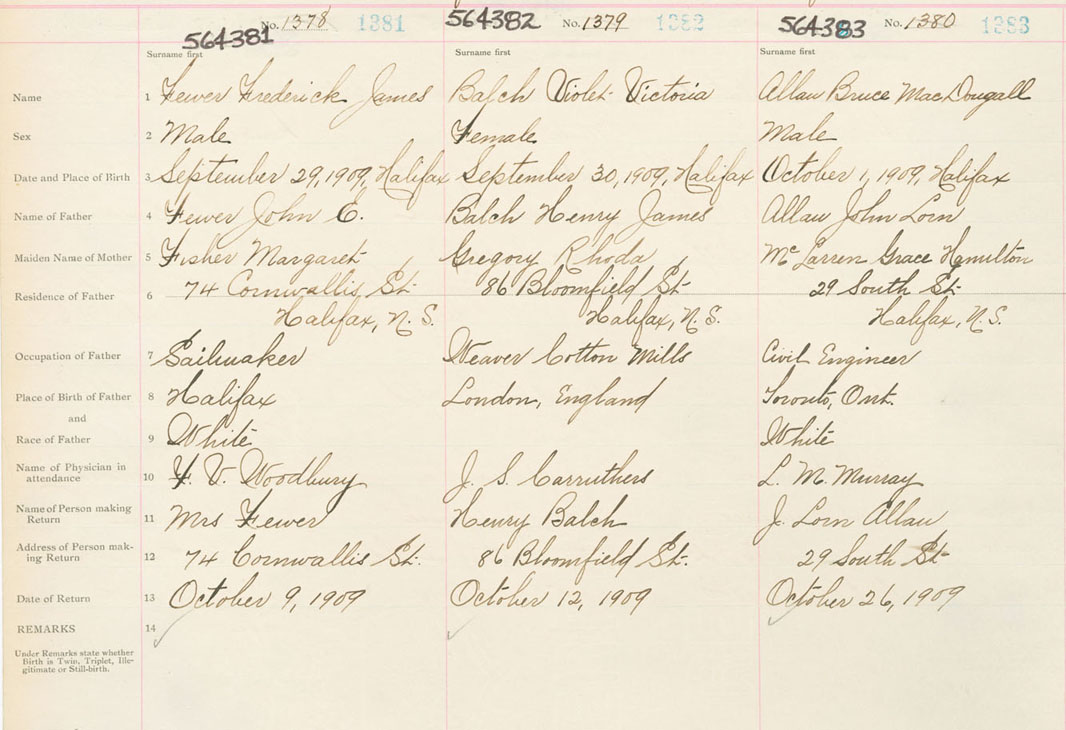 No. 1378 1381 No. 1379 1382 No. 1380 1383
564381 564382 564383
Surname first Surname first Surname first
Name 1 Fewer Frederick James Balch Violet Victoria Allan Bruce MacDougall
Sex 2 Male Female Male
Date and Place of Birth 3 September 29, 1909, Halifax September 30, 1909, Halifax October 1, 1909, Halifax
Name of Father 4 Fewer John C. Balch Henry James Allan John Lorn
Maiden Name of Mother 5 Fisher Margaret Gregory Rhoda McLarren Grace Hamilton
Residence of Father 6 74 Cornwallis St. 86 Bloomfield St. 29 South St.
Halifax, N.S. Halifax, N.S. Halifax, N.S.
Occupation of Father 7 Sailmaker Weaver Cotton Mills Civil Engineer
Place of Birth of Father 8 Halifax London, England Toronto, Ont.
and
Race of Father 9 White White
Name of Physician in attendance 10 F. V. Woodbury J. S. Carruthers L. M. Murray
Name of Person making Return 11 Mrs Fewer Henry Balch J. Lorn Allan
Address of Person mak-ing Return 12 74 Cornwallis St. 86 Bloomfield St. 29 South St.
Date of Return 13 October 9, 1909 October 12, 1909 October 26, 1909
REMARKS 14
Under Remarks state whether
Birth is Twin, Triplet, Ille-
gitimate or Still-birth.